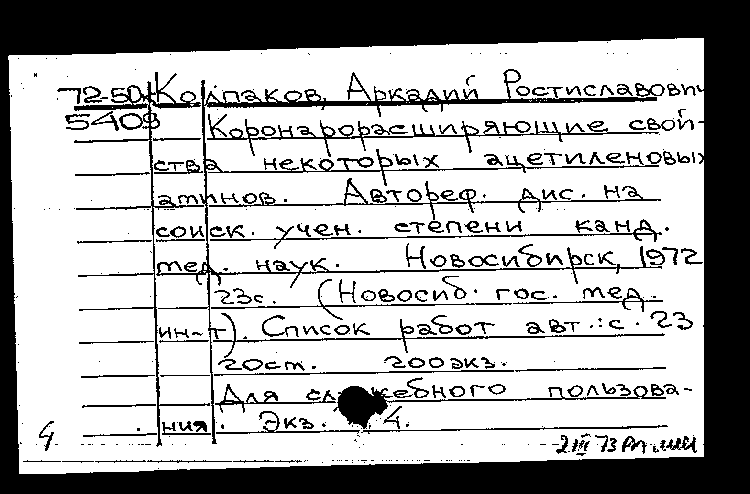 72-50 Колпаков, Аркадий Ростиславович
5409 Коронарорасширяющие свой-
ства некоторых ацетиленовых
аминов. Автореф. дис. на
соиск. учен. степени канд.
мед. наук. Новосибирск, 1972
23с. (Новосиб. гос. мед.
ин-т). Список работ авт.: с. 23
20см. 200экз.
Для служебного пользова-
ния. Экз. 4.
4 2 III 73